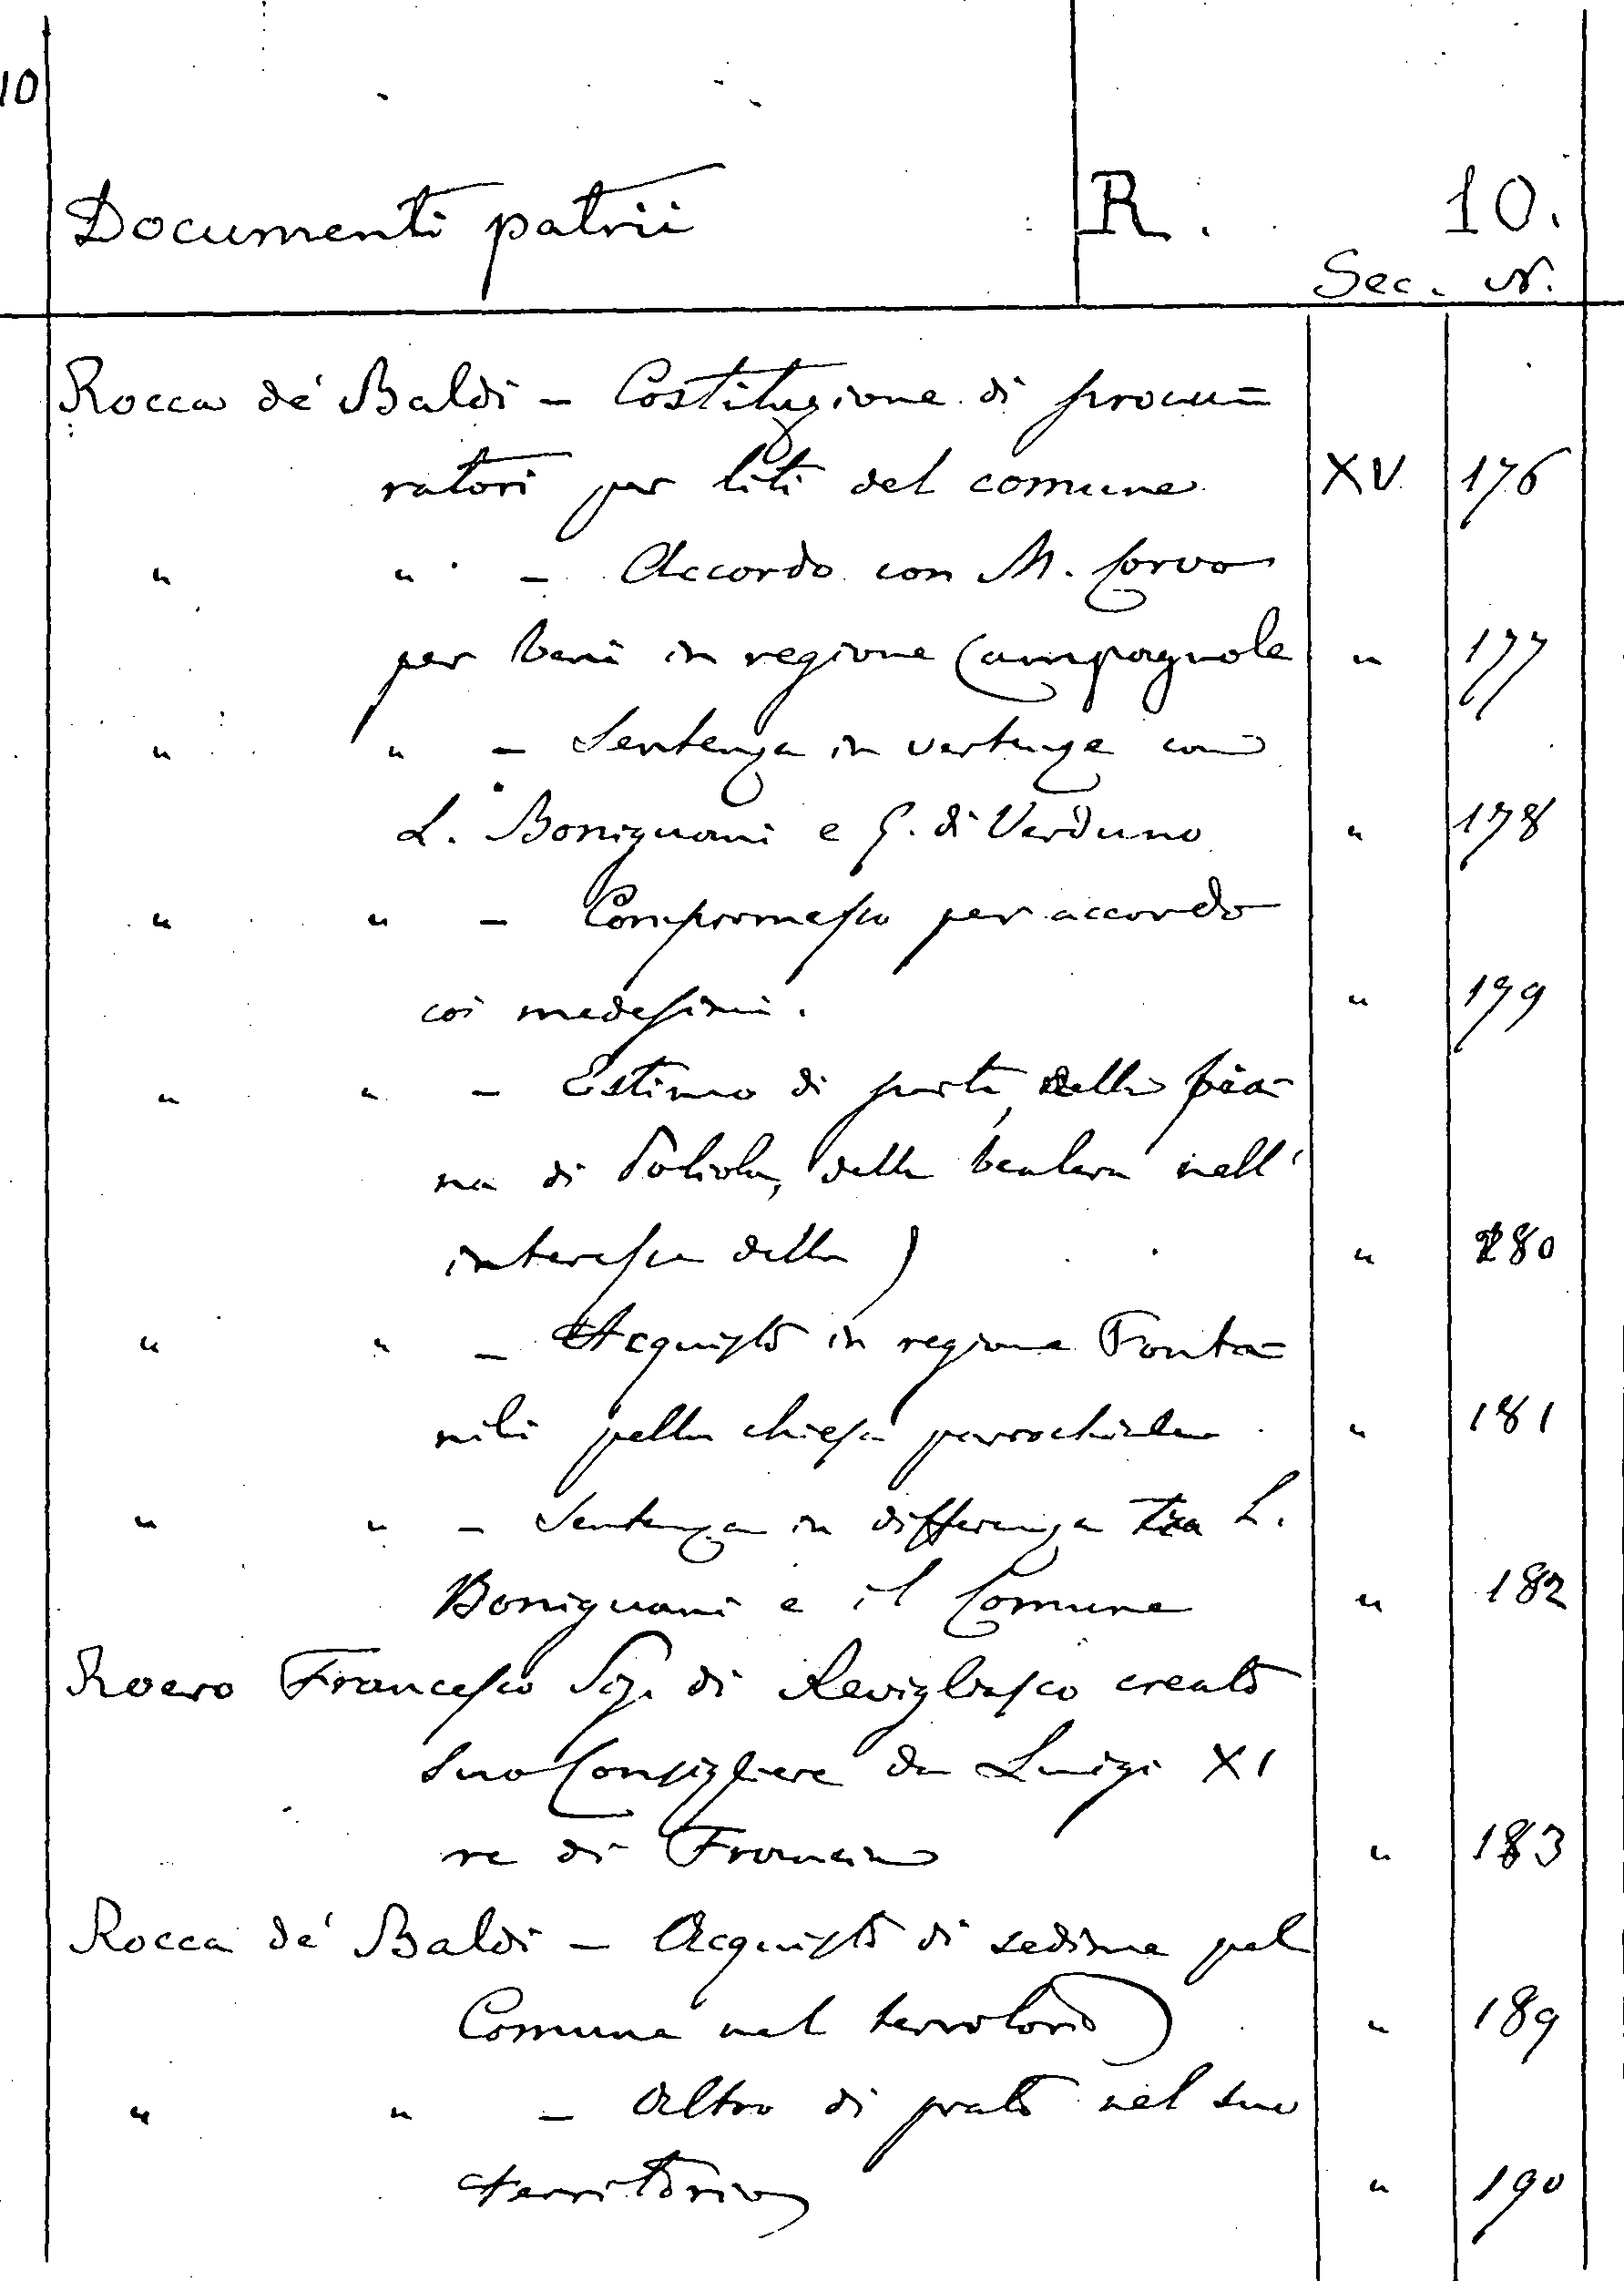 10
Documenti patrii R. 10.
Sec. N.
Rocca de' Baldi – Costituzione di procu=
ratori per liti del comune XV 176
" " – Accordo con M. Corvo
per beni in regione Campagnole " 177
" " – Sentenza in vertenze con
L. Bonignani e G. di Verduno " 178
" " – Compromesso per accordo
coi medesimi. " 179
" " – Estimo di parte, della pia-
na di Poliola, della bealera nell'
interesse della) " 180
" " – Acquisto in regione Fonta=
nili pella chiesa parrochiale " 181
" " – Sentenza in differenza tra L.
Bonignani e il Comune " 182
Roero Francesco Sig. di Revigliasco creato
suo Consigliere da Luigi XI
re di Francia " 183
Rocca de' Baldi – Acquisto di sedime pel
Comune nel terrotorio) " 189
" " – Altro di prato nel suo
territorio " 190